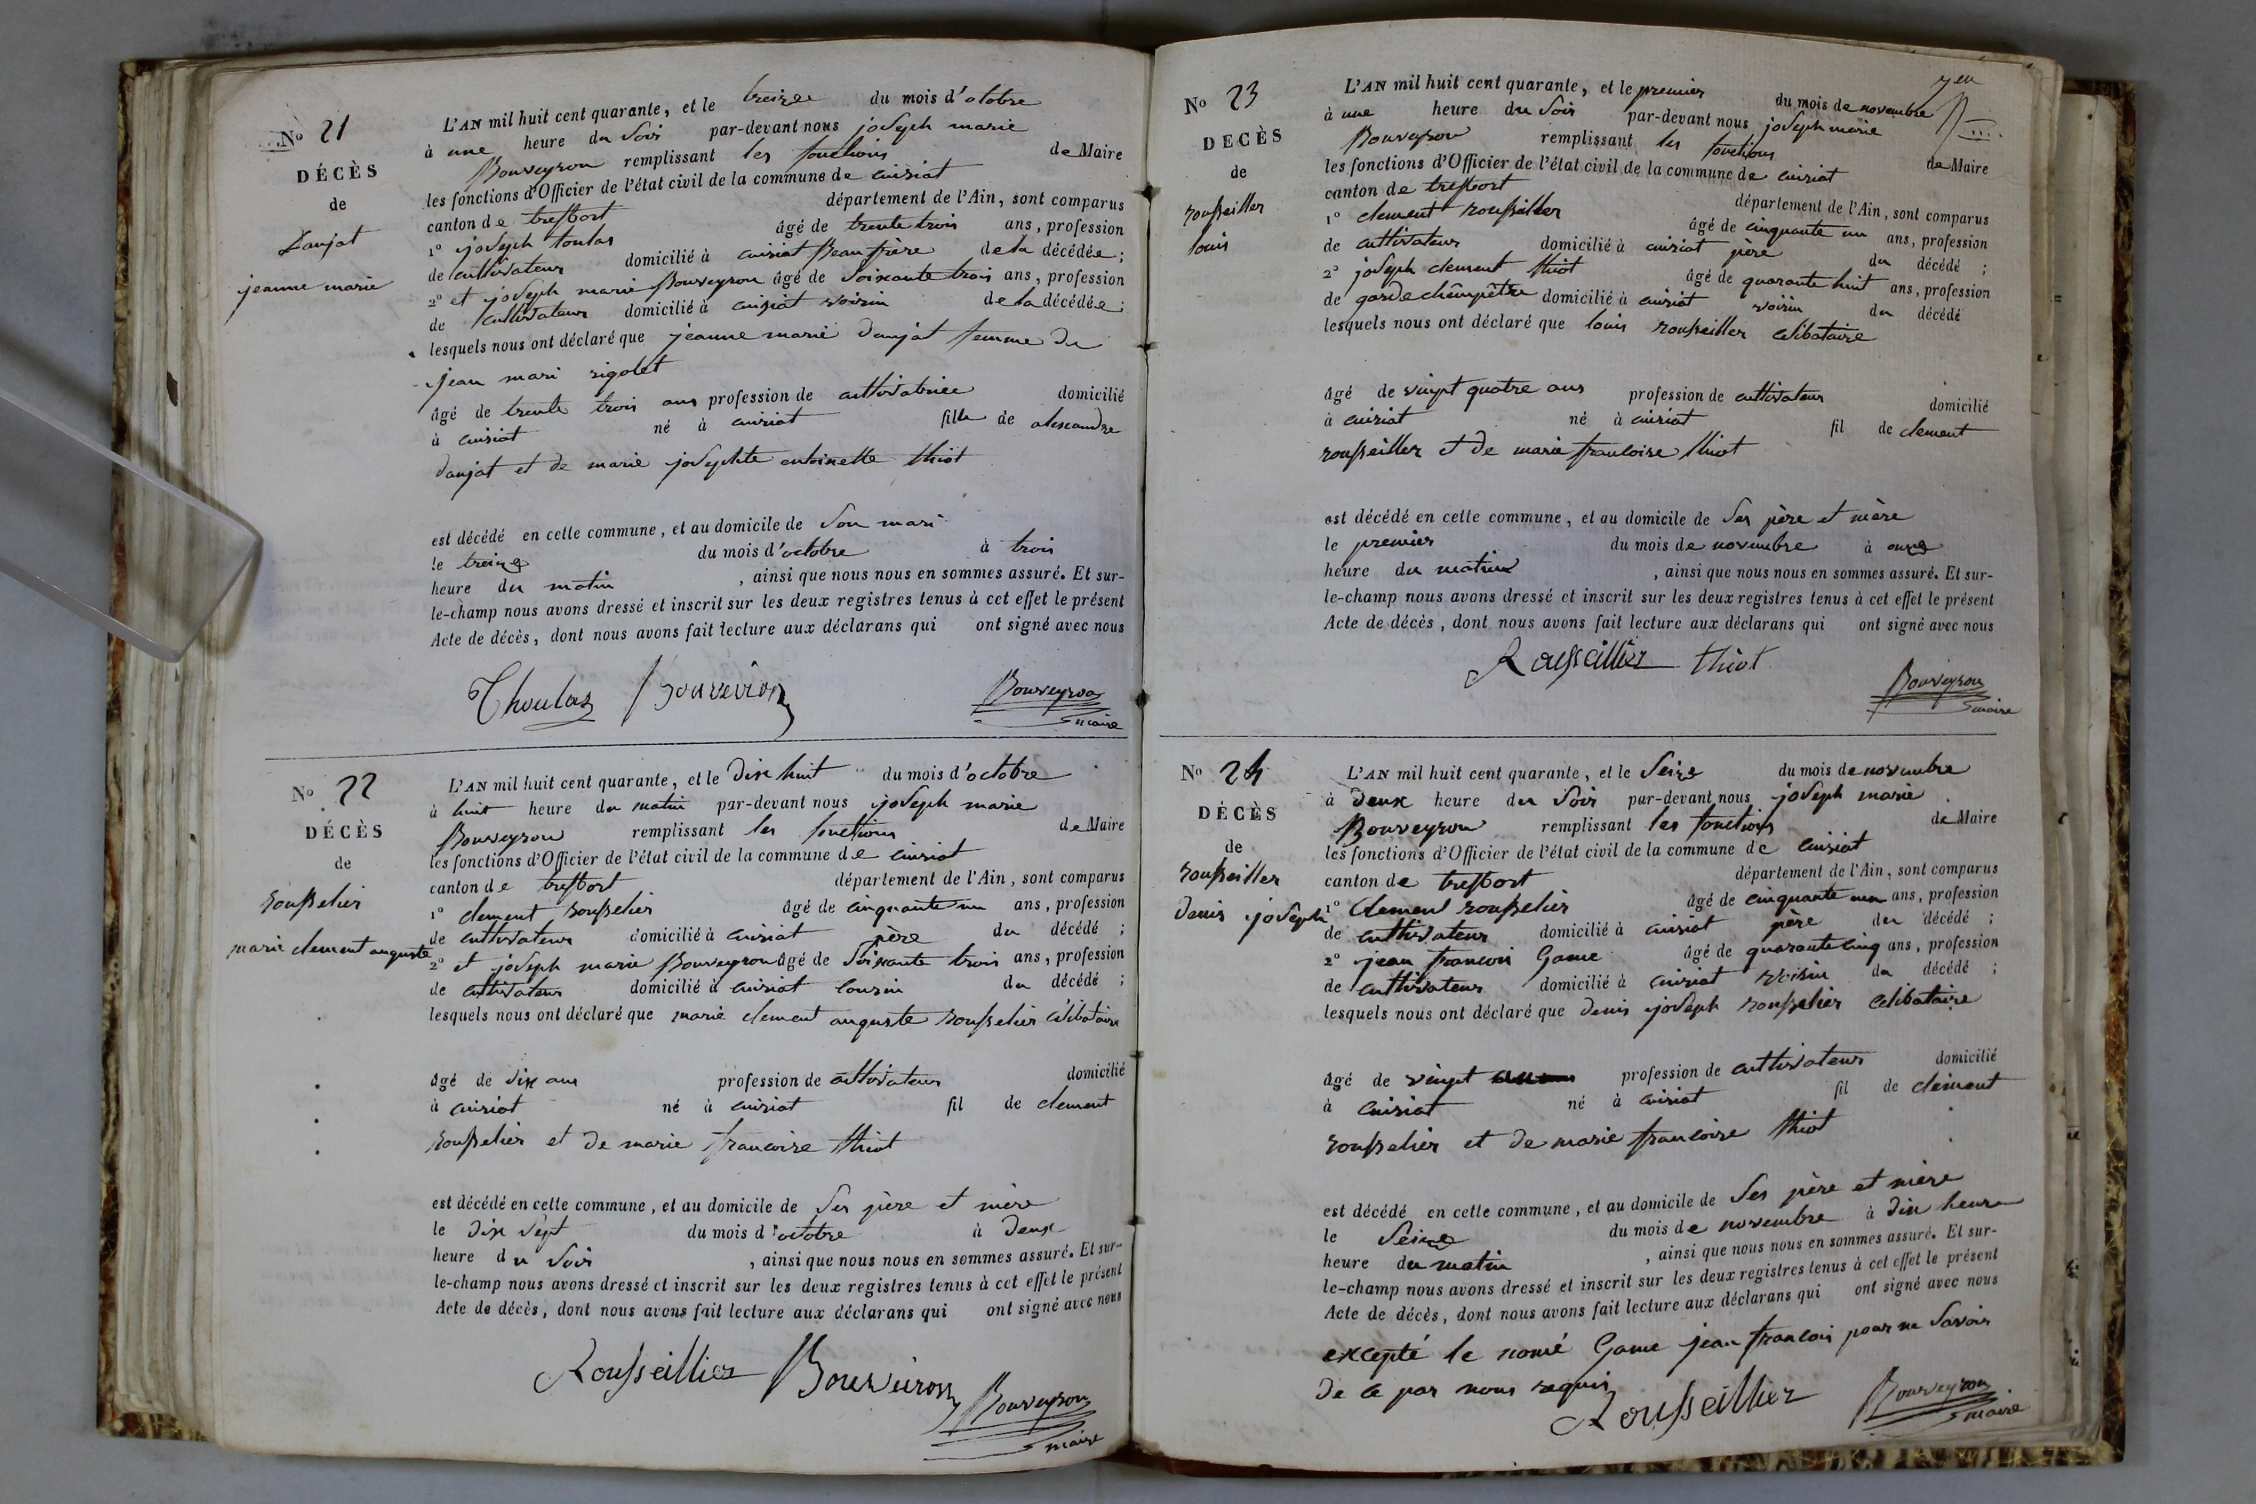 No 21
DÉCÈS
de
Danjat
jeanne marie
L'AN mil huit cent quarante, et le treize du mois d'octobre
à une heure du soir par-devant nous joseph marie
Bouveyron remplissant les fonctions de Maire
les fonctions d'Officier de l'état civil de la commune de cuisiat
canton de treffort département de l'Ain, sont comparus
1° joseph toulas âgé de trente trois ans, profession
de cultivateur domicilié à cuisiat Beaufrère de la décédée;
2° et joseph marie Bouveyron âgé de soixante trois ans, profession
de cultivateur domicilié à cuisiat voisin de la décédée;
lesquels nous ont déclaré que jeanne marie danjat femme de
jean mari rigolet
âgé de trente trois ans profession de cultivatrice domicilié
à cuisiat né à cuisiat fille de alexandre
danjat et de marie josephte antoinette thiot
est décédé en cette commune, et au domicile de son mari
le treize du mois d'octobre à trois
heure du matin, ainsi que nous nous en sommes assuré. Et sur-
le-champ nous avons dressé et inscrit sur les deux registres tenus à cet effet le présent
Acte de décès, dont nous avons fait lecture aux déclarans qui ont signé avec nous
Thoulas Bouveiron Bouveyron
maire
No 22
DÉCÈS
de
rousselier
marie clement auguste
L'AN mil huit cent quarante, et le dix huit du mois d'octobre
à huit heure du matin par-devant nous joseph marie
Bouveyron remplissant les fonctions de Maire
les fonctions d'Officier de l'état civil de la commune de cuisiat
canton de treffort département de l'Ain, sont comparus
1° clement rousselier âgé de cinquante un ans, profession
de cultivateur domicilié à cuisiat père du décédé;
2° et joseph marie Bouveyron âgé de soixante trois ans, profession
de cultivateur domicilié à cuisiat cousin du décédé;
lesquels nous ont déclaré que marie clement auguste rousselier célibataire
âgé de dix ans profession de cultivateur domicilié
à cuisiat né à cuisiat fil de clement
rousselier et de marie francoise thiot
est décédé en cette commune, et au domicile de ses père et mère
le dix sept du mois d'octobre à deux
heure du soir, ainsi que nous nous en sommes assuré. Et sur-
le-champ nous avons dressé et inscrit sur les deux registres tenus à cet effet le présent
Acte de décès, dont nous avons fait lecture aux déclarans qui ont signé avec nous
Rousseillier Bouveiron Bouveyron
maire
No 23
DECÈS
de
rousseiller
louis
L'AN mil huit cent quarante, et le premier du mois de novembre
à une heure du soir par-devant nous joseph marie
Bouveyron remplissant les fonctions de Maire
les fonctions d'Officier de l'état civil de la commune de cuisiat
canton de treffort département de l'Ain, sont comparus
1° clement rousseiller âgé de cinquante un ans, profession
de cultivateur domicilié à cuisiat père du décédé;
2° joseph clement thiot âgé de quarante huit ans, profession
de garde chêmpêtre domicilié à cuisiat voisin du décédé
lesquels nous ont déclaré que louis rousseiller célibataire
âgé de vingt quatre ans profession de cultivateur domicilié
à cuisiat né à cuisiat fil de clement
rousseiller et de marie francoise thiot
est décédé en cette commune, et au domicile de ses père et mère
le premier du mois de novembre à onze
heure du matin, ainsi que nous nous en sommes assuré. Et sur-
le-champ nous avons dressé et inscrit sur les deux registres tenus à cet effet le présent
Acte de décès, dont nous avons fait lecture aux déclarans qui ont signé avec nous
Rousseillier thiot
Bouveyron
maire
No 24
DÉCÈS
de
rousseiller
denis joseph
L'AN mil huit cent quarante, et le seize du mois de novembre
à deux heure du soir par-devant nous joseph marie
Bouveyron remplissant les fonctions de Maire
les fonctions d'Officier de l'état civil de la commune de cuisiat
canton de treffort département de l'Ain, sont comparus
1° clement rousselier âgé de cinquante un ans, profession
de cultivateur domicilié à cuisiat père du décédé;
2° jean francois Game âgé de quarante cinq ans, profession
de cultivateur domicilié à cuisiat voisin du décédé;
lesquels nous ont déclaré que denis joseph rousselier célibataire
âgé de vingt profession de cultivateur domicilié
à cuisiat né à cuisiat fil de clément
rousselier et de marie francoise thiot
est décédé en cette commune, et au domicile de ses père et mère
le seize du mois de novembre à dix heure
heure du matin, ainsi que nous nous en sommes assuré. Et sur-
le-champ nous avons dressé et inscrit sur les deux registres tenus à cet effet le présent
Acte de décès, dont nous avons fait lecture aux déclarans qui ont signé avec nous
excepté le nomé Game jean francois pour ne savoir
de ce par nous requis
Rousseillier Bouveyron
maire